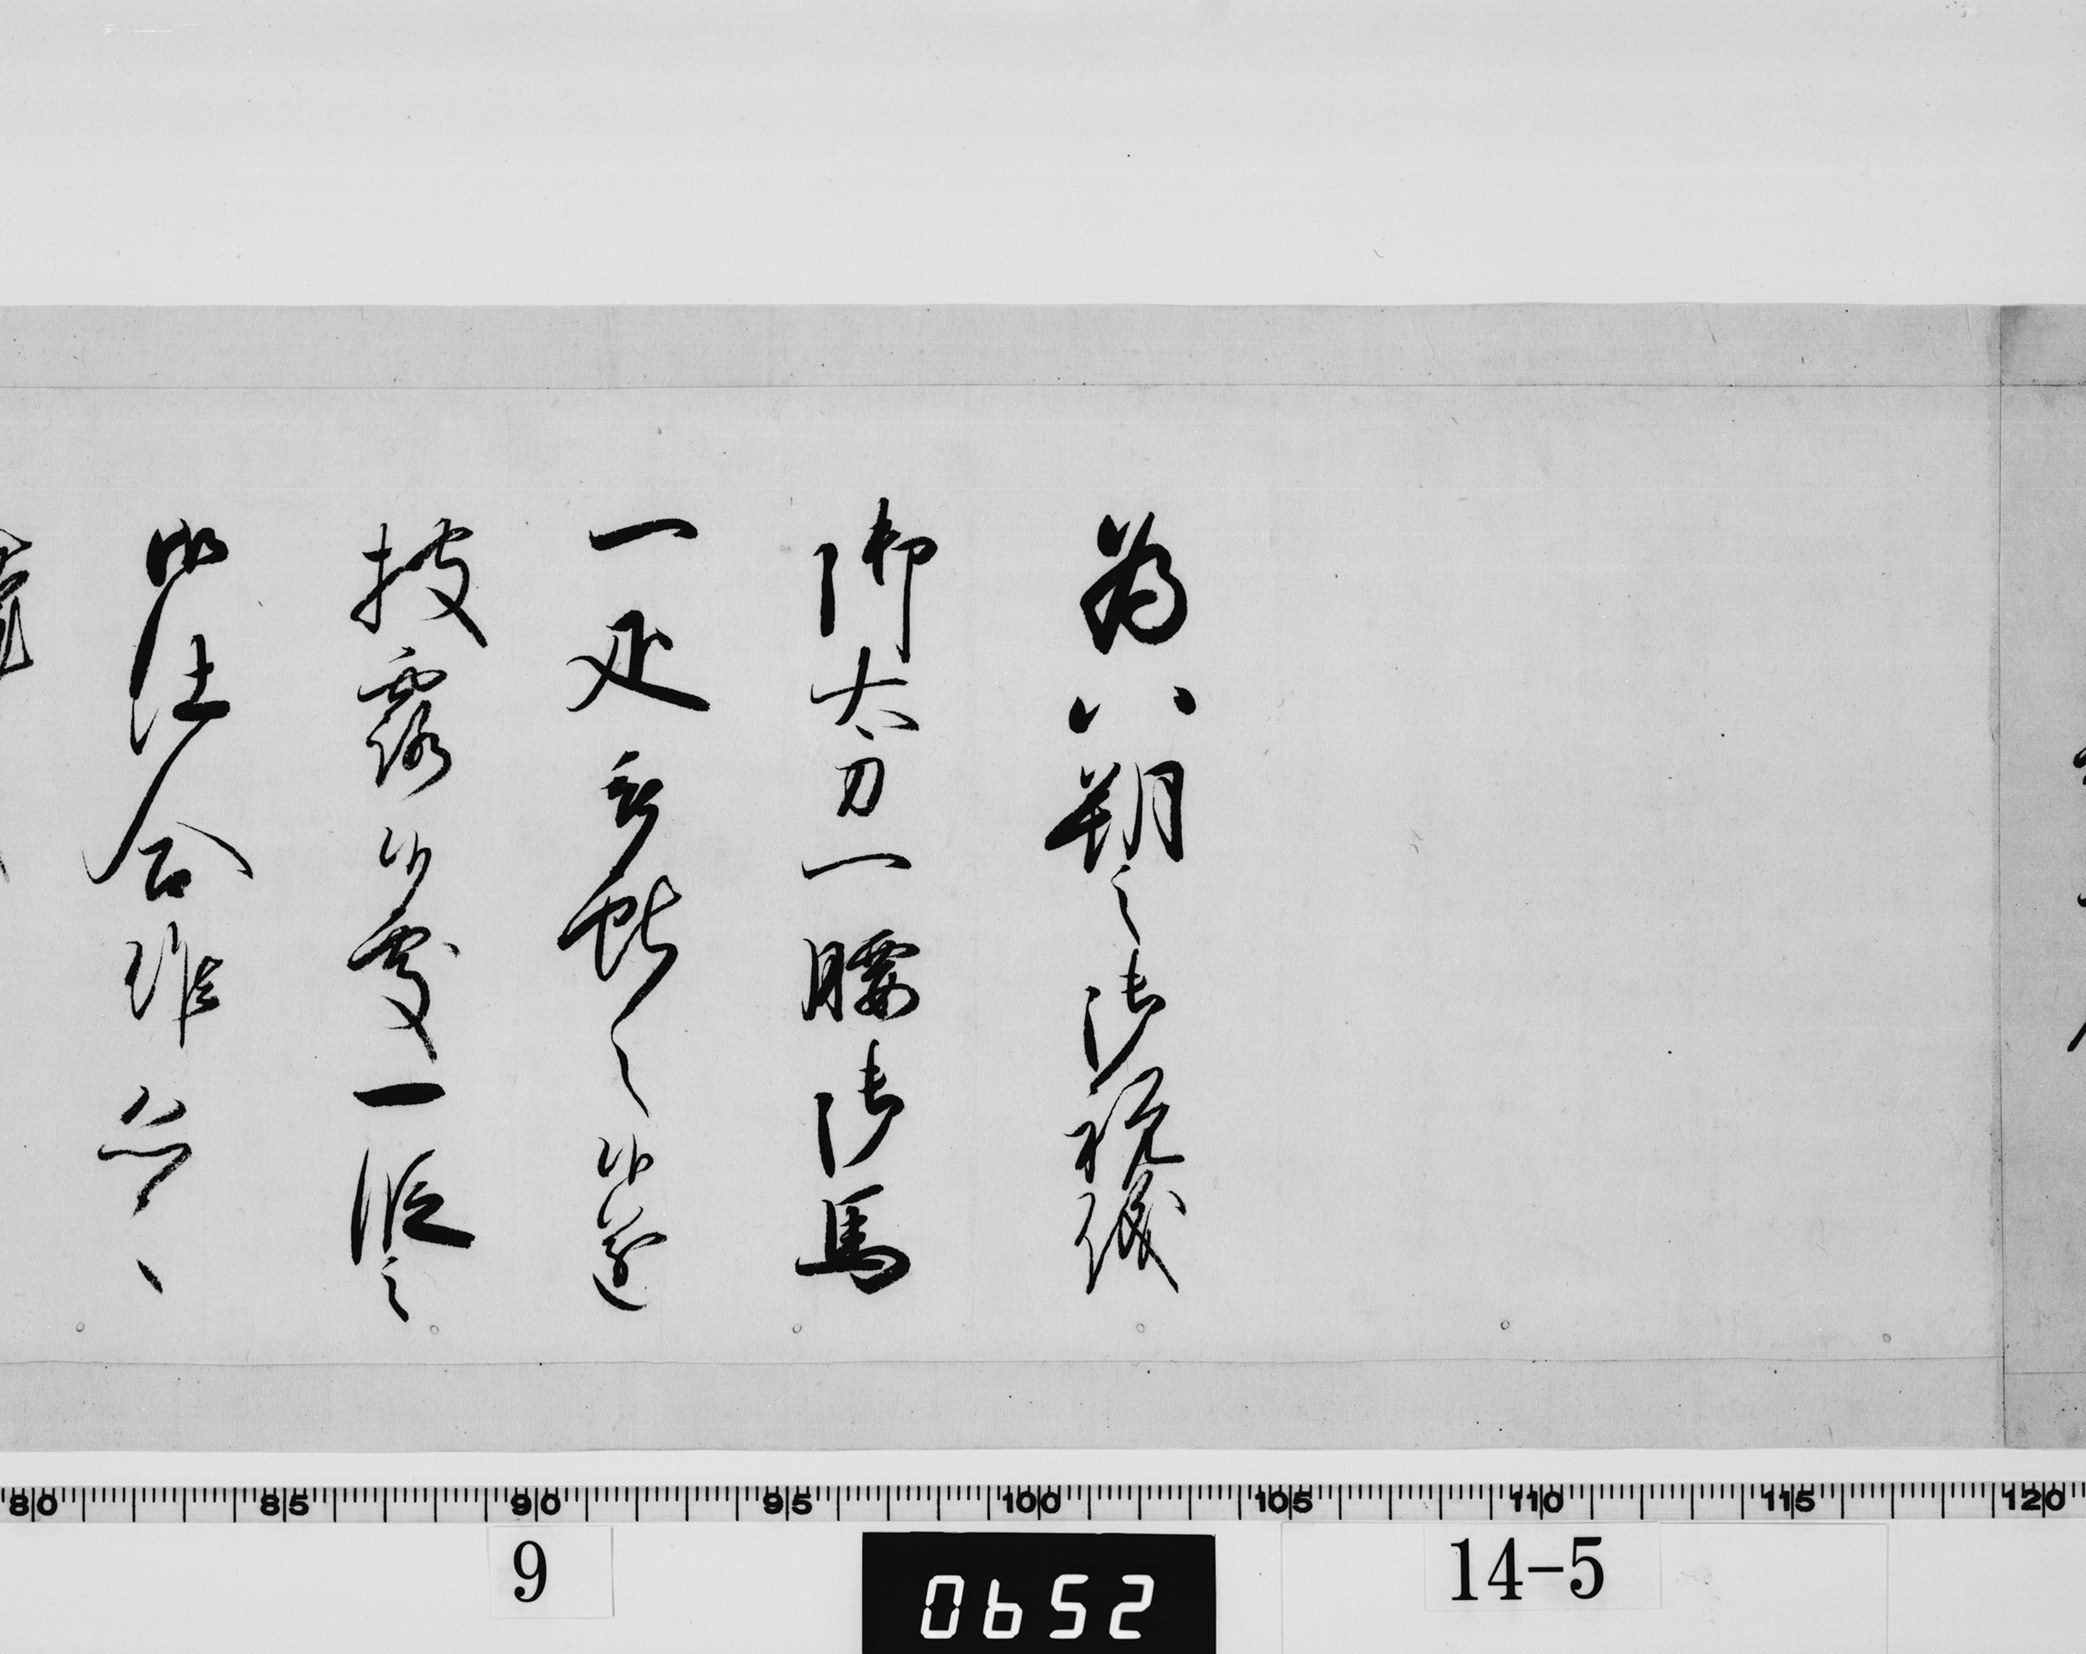 為八朔之御祝儀
御太刀一腰御馬
一疋被献之候遂
披露候處一段之
御仕合
80 85 90 95 100 105 110 115 120
9
0652
14-5